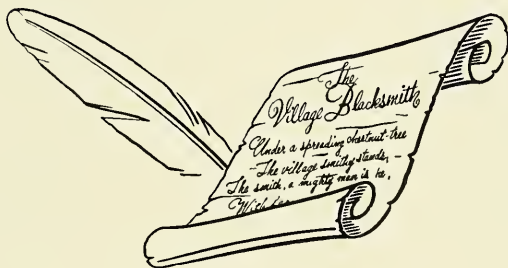 The
Village Blacksmith
Under a spreading chestnut-tree
The village smithy stands, –
The smith, a mighty man is he,
With